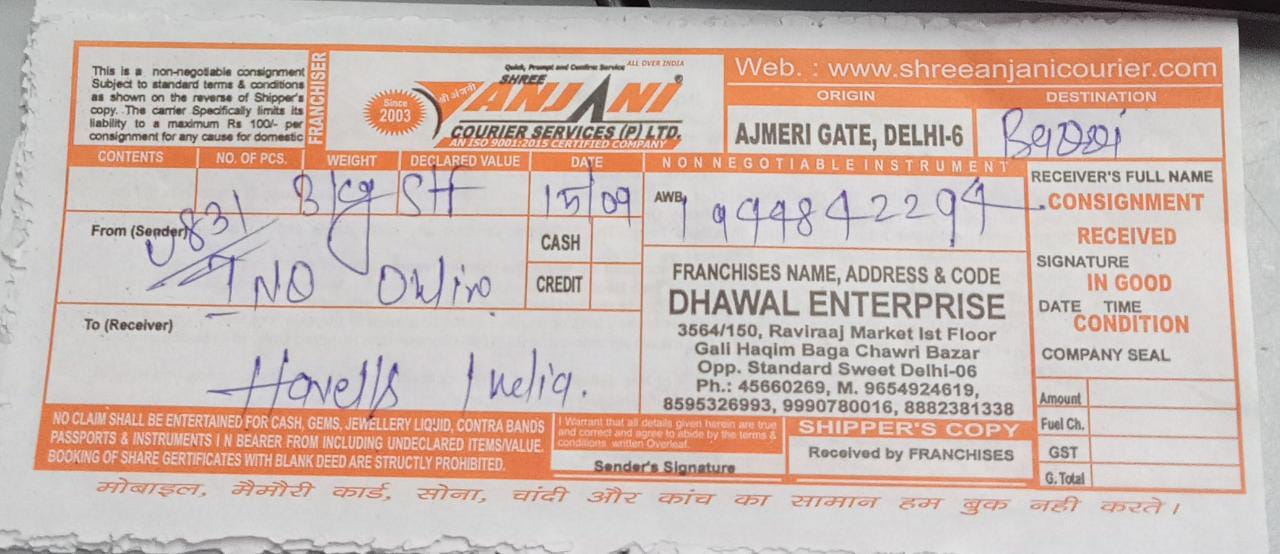 This is a non-negotiable consignment
Subject to standard terms & conditions
as shown on the reverse of Shipper's
copy. The carrier Specifically limits its
liability to a maximum Rs 100/- per
consignment for any cause for domestic
FRANCHISER
Since
2003
श्री अंजनी
Quick, Prompt and Confirm Service ALL OVER INDIA
SHREE
ANJANI®
COURIER SERVICES (P) LTD.
AN ISO 9001:2015 CERTIFIED COMPANY
Web. : www.shreeanjanicourier.com
ORIGIN DESTINATION
AJMERI GATE, DELHI-6
CONTENTS NO. OF PCS. WEIGHT DECLARED VALUE DATE NON NEGOTIABLE INSTRUMENT
3kg 15/09
AWB 19994842294
From (Sender)
831
CASH
CREDIT
To (Receiver)
Havells India.
FRANCHISES NAME, ADDRESS & CODE
DHAWAL ENTERPRISE
3564/150, Raviraaj Market Ist Floor
Gali Haqim Baga Chawri Bazar
Opp. Standard Sweet Delhi-06
Ph.: 45660269, M. 9654924619,
8595326993, 9990780016, 8882381338
RECEIVER'S FULL NAME
CONSIGNMENT
RECEIVED
SIGNATURE
IN GOOD
DATE TIME
CONDITION
COMPANY SEAL
Amount
Fuel Ch.
GST
G. Total
NO CLAIM SHALL BE ENTERTAINED FOR CASH, GEMS, JEWELLERY LIQUID, CONTRA BANDS
PASSPORTS & INSTRUMENTS I N BEARER FROM INCLUDING UNDECLARED ITEMS/VALUE.
BOOKING OF SHARE GERTIFICATES WITH BLANK DEED ARE STRUCTLY PROHIBITED.
I Warrant that all details given herein are true
and correct and agree to abide by the terms &
conditions written Overleaf.
Sender's Signature
SHIPPER'S COPY
Received by FRANCHISES
मोबाइल, मैमौरी कार्ड, सोना, चांदी और कांच का सामान हम बुक नही करते।